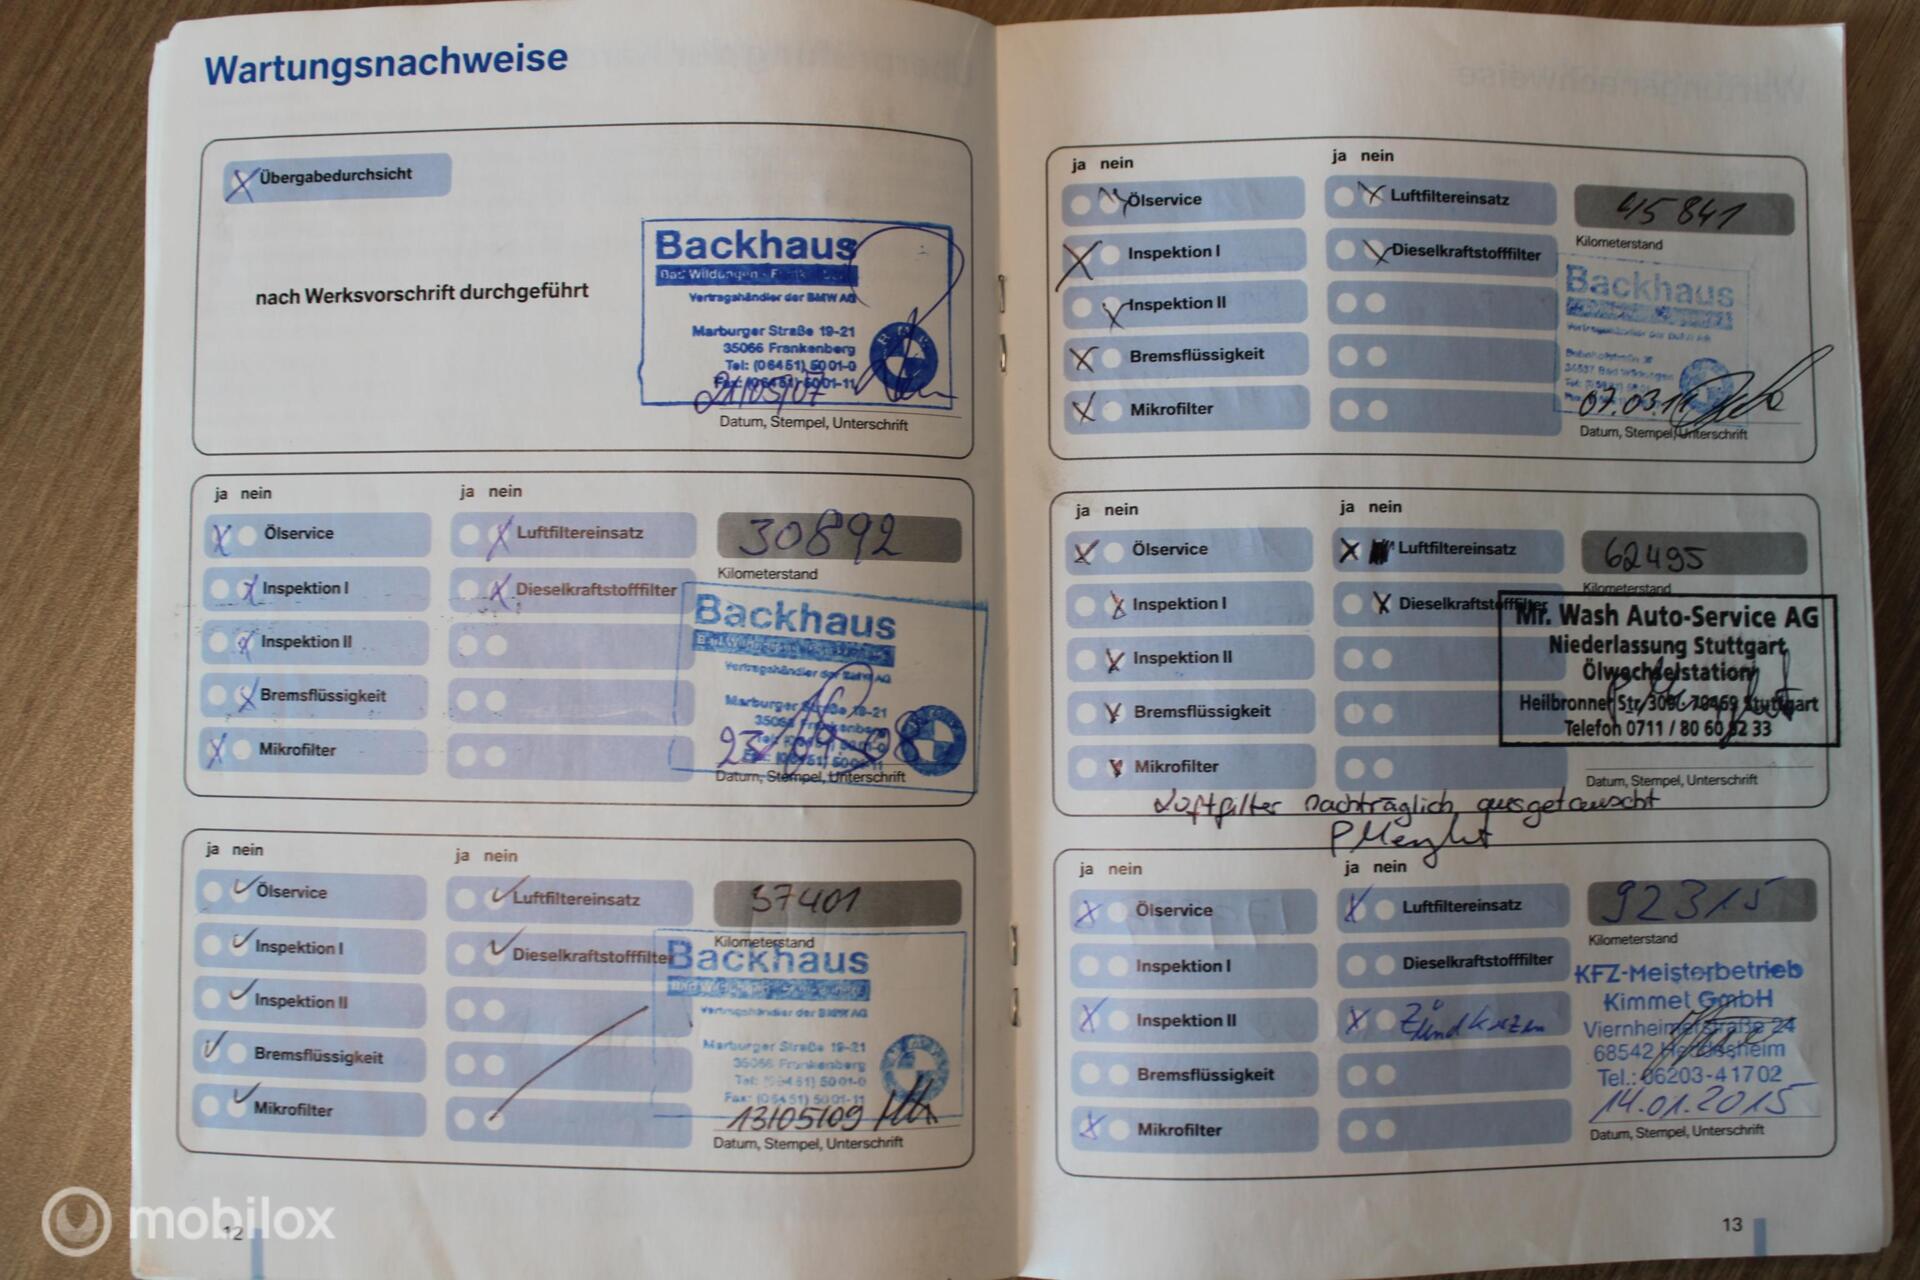 Wartungsnachweise
Übergabedurchsicht
nach Werksvorschrift durchgeführt
Backhaus
Bad Wildungen
Vertragshändler der BMW AG
Marburger Straße 19-21
35066 Frankenberg
Tel: (06451) 5001-0
Fax: (06451) 5001-11
21/05/07
Datum, Stempel, Unterschrift
ja nein
ja nein
Ölservice
Luftfiltereinsatz
30892
Kilometerstand
Inspektion I
Dieselkraftstofffilter
Inspektion II
Bremsflüssigkeit
Mikrofilter
Backhaus
Vertragshändler der BMW AG
Marburger Straße 19-21
35066 Frankenberg
Datum, Stempel, Unterschrift
ja nein
ja nein
Ölservice
Luftfiltereinsatz
37401
Kilometerstand
Inspektion I
Dieselkraftstofffilter
Inspektion II
Bremsflüssigkeit
Mikrofilter
Backhaus
Vertragshändler der BMW AG
Marburger Straße 19-21
35066 Frankenberg
Tel: (06451) 5001-0
Fax: (06451) 5001-11
13/05/09
Datum, Stempel, Unterschrift
12
ja nein
ja nein
Ölservice
Luftfiltereinsatz
45841
Kilometerstand
Inspektion I
Dieselkraftstofffilter
Inspektion II
Bremsflüssigkeit
Mikrofilter
Backhaus
Datum, Stempel, Unterschrift
ja nein
ja nein
Ölservice
Luftfiltereinsatz
62495
Kilometerstand
Inspektion I
Dieselkraftstofffilter
Inspektion II
Bremsflüssigkeit
Mikrofilter
Mr. Wash Auto-Service AG
Niederlassung Stuttgart
Ölwechselstation
Heilbronner Str. Stuttgart
Telefon 0711 / 80 60 92 33
Datum, Stempel, Unterschrift
Luftfilter nachträglich ausgetauscht
ja nein
ja nein
Ölservice
Luftfiltereinsatz
92315
Kilometerstand
Inspektion I
Dieselkraftstofffilter
Inspektion II
Zündkerzen
Bremsflüssigkeit
Mikrofilter
KFZ-Meisterbetrieb
Kimmel GmbH
Viernheimer Straße 24
68542 Heddesheim
Tel.: 06203-41702
14.01.2015
Datum, Stempel, Unterschrift
13
mobilox